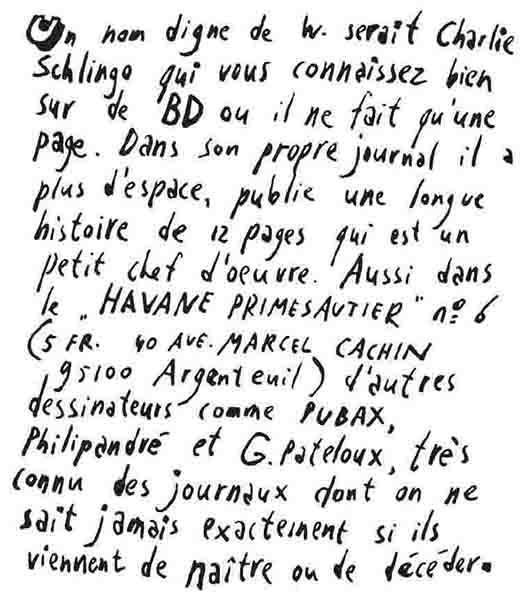 Un nom digne de W. serait Charlie
Schlingo qui vous connaissez bien
sur de BD ou il ne fait qu'une
page. Dans son propre journal il a
plus d'espace, publie une longue
histoire de 12 pages qui est un
petit chef d'oeuvre. Aussi dans
le „HAVANE PRIMESAUTIER" nº 6
(5 FR. 40 AVE. MARCEL CACHIN
95100 Argenteuil) d'autres
dessinateurs comme PUBAX,
Philipandré et G. Pateloux, très
connu des journaux dont on ne
sait jamais exactement si ils
viennent de naître ou de décéder.